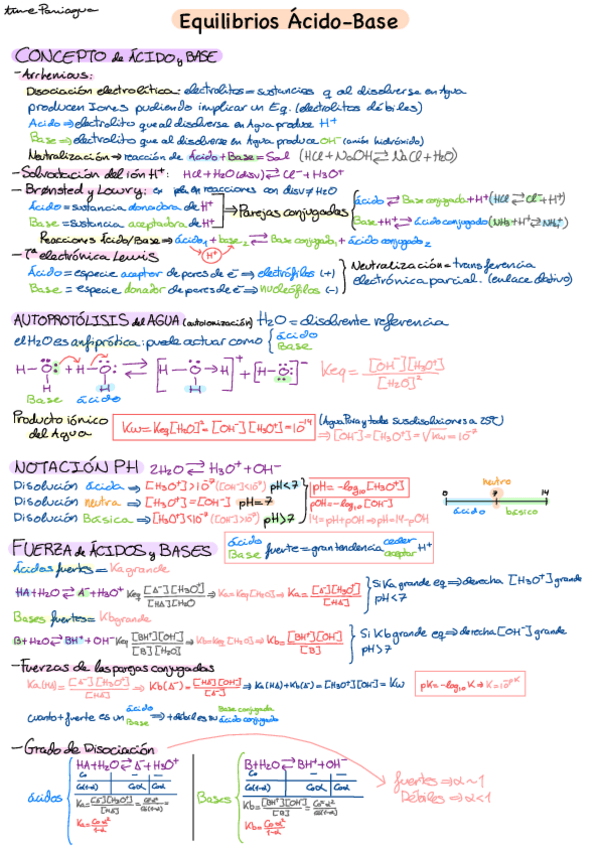 Equilibrios Ácido-Base
CONCEPTO de ÁCIDO y BASE
-Arrhenious:
Disociación electrolítica: electrolitos = sustancias q al disolverse en Agua
producen Iones pudiendo implicar un Eq. (electrolitos débiles)
Ácido ⇒ electrolito que al disolverse en Agua produce H⁺
Base ⇒ electrolito que al disolverse en Agua produce OH⁻ (anión hidróxido)
Neutralización → reacción de Ácido + Base = Sal (HCl + NaOH ⇄ NaCl + H₂O)
-Solvatación del ión H⁺: HCl + H₂O (disv) ⇄ Cl⁻ + H₃O⁺
-Brønsted y Lowry: en reacciones con disv ≠ H₂O
Ácido = sustancia donadora de H⁺
Base = Sustancia aceptadora de H⁺
⇒ Parejas conjugadas
ácido ⇄ Base conjugada + H⁺ (HCl ⇄ Cl⁻ + H⁺)
Base + H⁺ ⇄ ácido conjugado (NH₃ + H⁺ ⇄ NH₄⁺)
Reacciones Ácido/Base ⇒ ácido₁ + base₂ ⇄ Base conjugada₁ + ácido conjugado₂
H⁺
-Tª electrónica Lewis
Ácido = especie aceptor de pares de e⁻ ⇒ electrófilos (+)
Base = especie donador de pares de e⁻ ⇒ nucleófilos (-)
Neutralización = transferencia
electrónica parcial. (enlace dativo)
AUTOPROTÓLISIS del AGUA (autoionización) H₂O = disolvente referencia
el H₂O es anfiprótica: puede actuar como { ácido
Base
H-O: + H-O: ⇄ [H-O→H]⁺ + [H-O:]⁻
H H H
Base ácido
Keq = [OH⁻][H₃O⁺] / [H₂O]²
Producto iónico
del Agua
Kw = Keq[H₂O]² = [OH⁻][H₃O⁺] = 10⁻¹⁴
(Agua Pura y todas sus disoluciones a 25ºC)
⇒ [OH⁻] = [H₃O⁺] = √Kw = 10⁻⁷
NOTACIÓN PH 2H₂O ⇄ H₃O⁺ + OH⁻
Disolución ácida ⇒ [H₃O⁺] > 10⁻⁷ ([OH⁻] < 10⁻⁷) pH < 7
Disolución neutra ⇒ [H₃O⁺] = [OH⁻] pH = 7
Disolución Básica ⇒ [H₃O⁺] < 10⁻⁷ ([OH⁻] > 10⁻⁷) pH > 7
pH = -log₁₀[H₃O⁺]
pOH = -log₁₀[OH⁻]
14 = pH + pOH ⇒ pH = 14 - pOH
neutro
0 7 14
ácido básico
FUERZA de ÁCIDOS y BASES
ácido
Base
fuerte = gran tendencia
ceder
aceptar
H⁺
Ácidos fuertes = Ka grande
HA + H₂O ⇄ A⁻ + H₃O⁺ Keq [A⁻][H₃O⁺] / [HA][H₂O] ⇒ Ka = Keq[H₂O] ⇒ Ka = [A⁻][H₃O⁺] / [HA]
Si Ka grande eq ⇒ derecha [H₃O⁺] grande
pH < 7
Bases fuertes = Kb grande
B + H₂O ⇄ BH⁺ + OH⁻ Keq [BH⁺][OH⁻] / [B][H₂O] ⇒ Kb = Keq[H₂O] ⇒ Kb = [BH⁺][OH⁻] / [B]
Si Kb grande eq ⇒ derecha [OH⁻] grande
pH > 7
-Fuerzas de las parejas conjugadas
Ka(HA) = [A⁻][H₃O⁺] / [HA] ⇒ Kb(A⁻) = [HA][OH⁻] / [A⁻] ⇒ Ka(HA) · Kb(A⁻) = [H₃O⁺][OH⁻] = Kw
pK = -log₁₀K ⇒ K = 10⁻ᵖᴷ
cuanto + fuerte es un ácido
Base ⇒ + débil es su Base conjugada
ácido conjugado
-Grado de Disociación
ácidos
HA + H₂O ⇄ A⁻ + H₃O⁺
C₀ - -
C₀(1-α) C₀α C₀α
Ka = [A⁻][H₃O⁺] / [HA] = C₀²α² / C₀(1-α) =
Ka = C₀α² / 1-α
Bases
B + H₂O ⇄ BH⁺ + OH⁻
C₀ - -
C₀(1-α) C₀α C₀α
Kb = [BH⁺][OH⁻] / [B] = C₀²α² / C₀(1-α)
Kb = C₀α² / 1-α
fuertes ⇒ α ~ 1
Débiles ⇒ α < 1